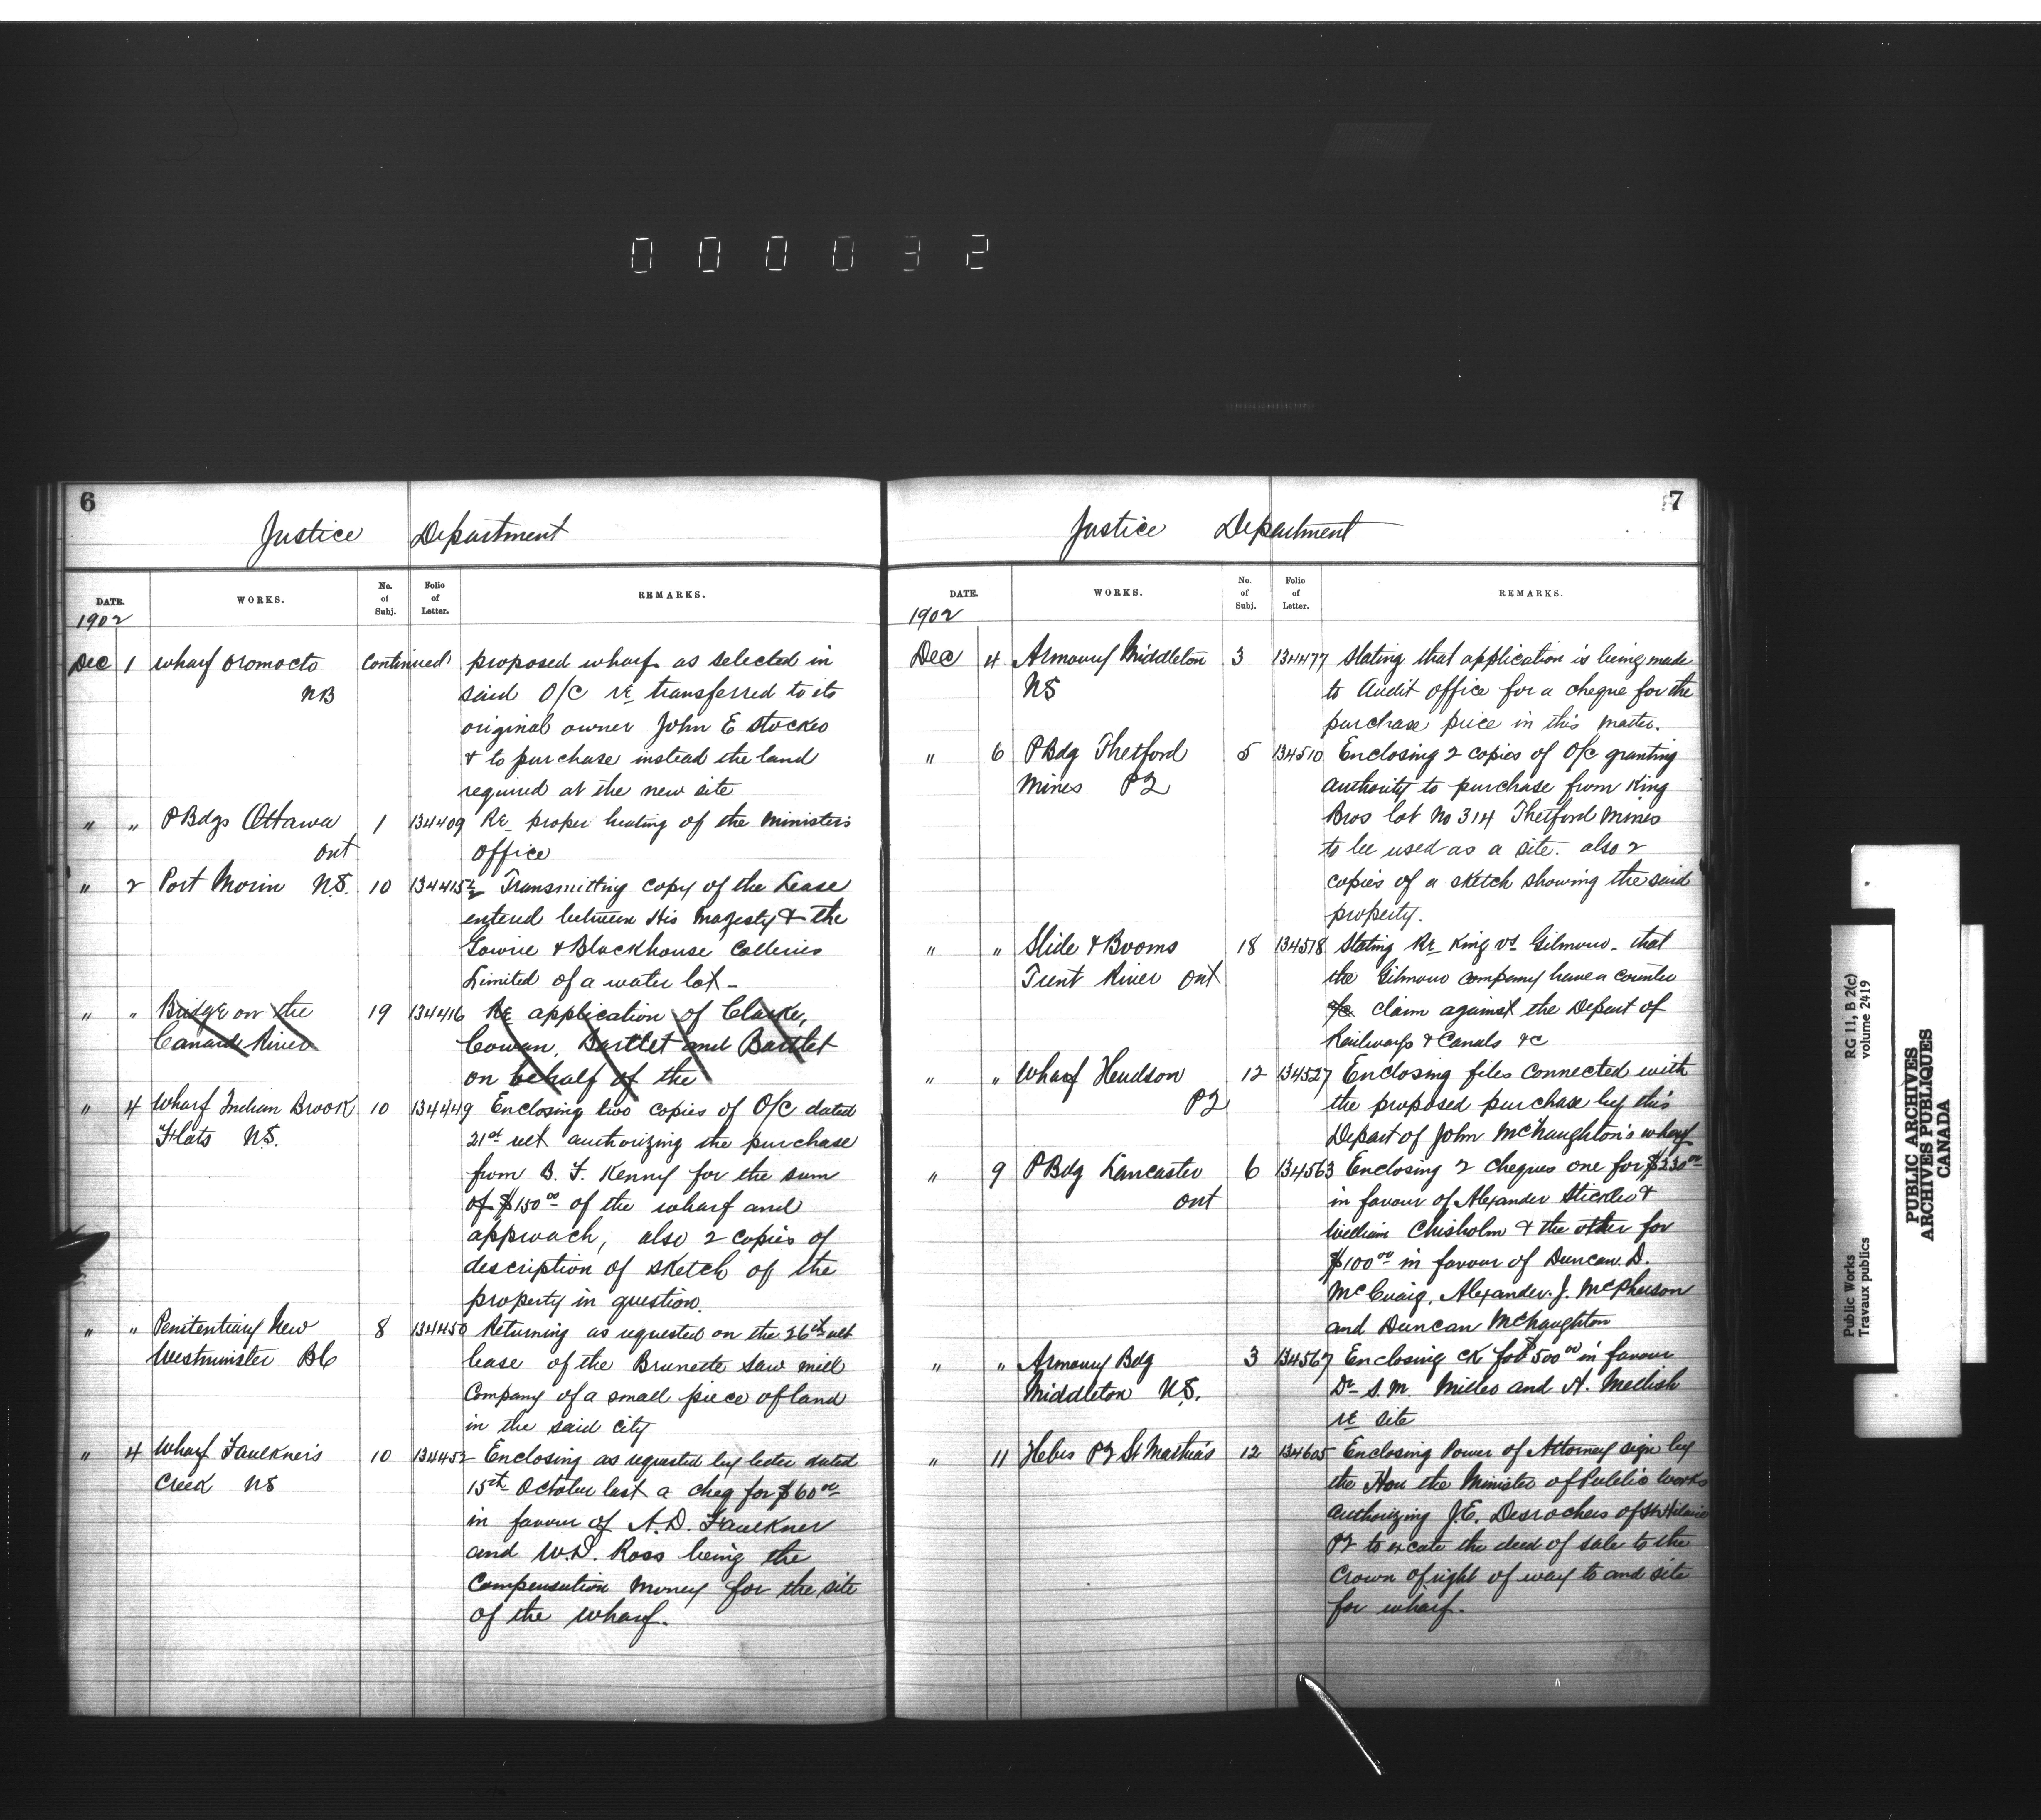 000032
6
Justice Department
DATE. WORKS. No. of Subj. Folio of Letter. REMARKS.
1902
Dec 1 Wharf Oromocto Continued proposed wharf as selected in
NB said O/C re transferred to its
original owner John E Stocker
& to purchase instead the land
required at the new site
" " P Bdgs Ottawa 1 134409 Re proper heating of the Ministers
Ont office
" 2 Port Morin N.S. 10 134415½ Transmitting copy of the Lease
entered between His Majesty & the
Gowrie & Blackhouse Colleries
Limited of a water lot -
" " Bridge on the 19 134416 Re application of Clarke,
Canard River Cowan, Bartlet and Bartlet
on behalf of the
" 4 Wharf Indian Brook 10 134449 Enclosing two copies of O/C dated
Flats N.S. 21st ult authorizing the purchase
from B. F. Kenny for the sum
of $150 00 of the wharf and
approach, also 2 copies of
description of sketch of the
property in question.
" " Penitentiary New 8 134450 Returning as requested on the 26th ult
Westminster BC lease of the Brunette Saw mill
Company of a small piece of land
in the said city
" 4 Wharf Faulkner's 10 134452 Enclosing as requested by letter dated
Creek NS 15th October last a cheq for $60 00
in favour of A.D. Faulkner
and W.D. Ross being the
Compensation Money for the site
of the wharf.
7
Justice Department
DATE. WORKS. No. of Subj. Folio of Letter. REMARKS.
1902
Dec 4 Armoury Middleton 3 134477 Stating that application is being made
NS to Audit office for a cheque for the
purchase price in this matter.
" 6 P Bdg Thetford 5 134510 Enclosing 2 copies of O/C granting
Mines PQ authority to purchase from King
Bros lot No 314 Thetford Mines
to be used as a site. also 2
copies of a sketch showing the said
property.
" " Slide & Booms 18 134518 Stating Re King vs Gilmour - that
Trent River Ont the Gilmour company have a counter
claim against the Depart of
Railways & Canals &c
" " Wharf Hudson 12 134527 Enclosing files connected with
PQ the proposed purchase by this
Depart of John McNaughton's wharf
" 9 P Bdg Lancaster 6 134563 Enclosing 2 cheques one for $330 00
Ont in favour of Alexander Stickler &
William Chisholm & the other for
$100 00 in favour of Duncan D.
McCuaig, Alexander J. McPherson
and Duncan McNaughton
" " Armoury Bdg 3 134567 Enclosing ck for $500 00 in favour
Middleton N.S. Dr S. M. Miller and A. Mellish
re site
" 11 Hebes PQ St Mathias 12 134605 Enclosing Power of Attorney sign by
the Hon the Minister of Public Works
authorizing J.E. Desrochers of St Hilaire
PQ to excute the deed of sale to the
Crown of right of way to and site
for wharf.
Public Works RG 11, B 2(c)
Travaux publics volume 2419
PUBLIC ARCHIVES
ARCHIVES PUBLIQUES
CANADA